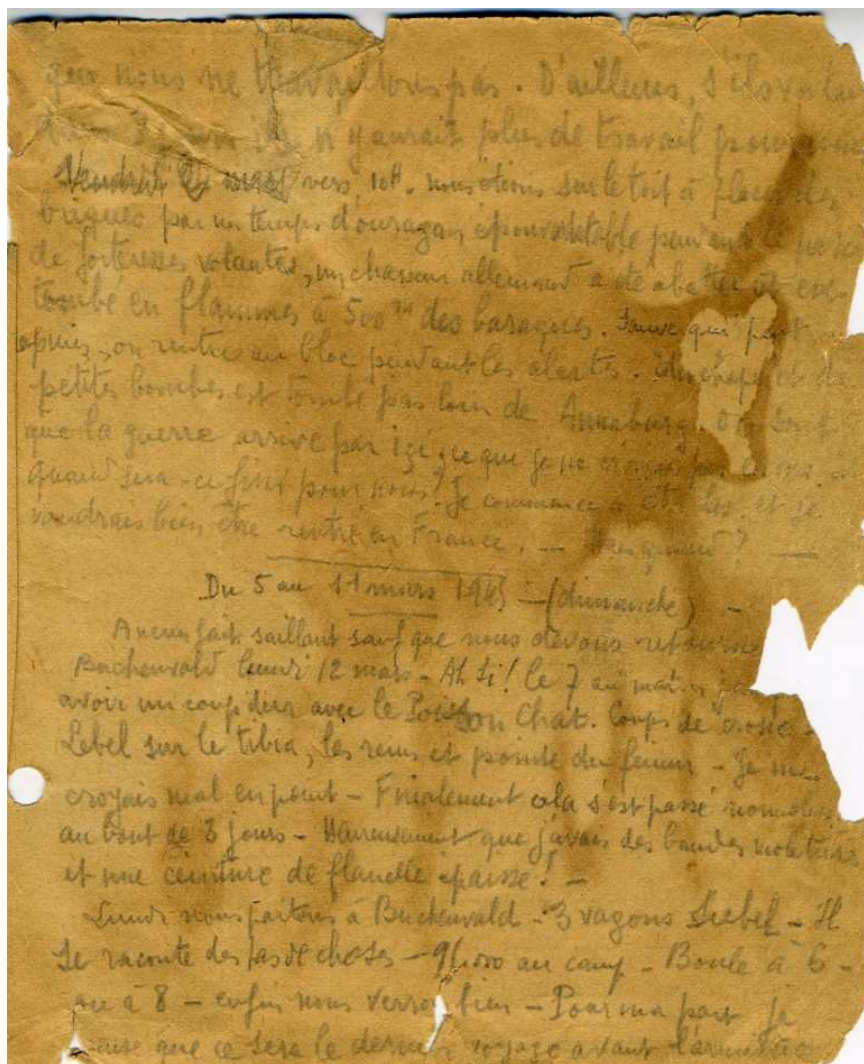 que nous ne travaillons pas. D'ailleurs, s'ils
il n'y aurait plus de travail pour
Vendredi mars vers 10H. nous étions sur le toit à placer des
briques par un temps d'ouragan épouvantable pendant le
de forteresses volantes, un chasseur allemand a été abattu et est
tombé en flammes à 500m des baraques. Sauve qui peut,
après, on rentre au bloc pendant les alertes. de
petites bombes est tombé pas loin de Annaburg.
que la guerre arrive par ici, ce que je ne
quand sera-ce fini pour nous? Je commence à être las et je
voudrais bien être rentré en France. — Mais quand? —
Du 5 au 11 mars 1945 — (dimanche) -
Aucun fait saillant sauf que nous devons
Buchenwald lundi 12 mars - Ah Si! le 7 au matin
avoir un coup dur avec le Poisson Chat. Coups de crosse
Lebel sur le tibia, les reins et pointe du fémur - Je me
croyais mal en point - Finalement cela s'est passé
au bout de 3 jours - Heureusement que j'avais des bandes
et une ceinture de flanelle épaisse! -
Lundi nous partons à Buchenvald - 3 vagons - Il
se raconte des tas de choses - au camp - Boule à 6 -
ou à 8 - enfin nous verrons bien - Pour ma part je
pense que ce sera le dernier voyage avant